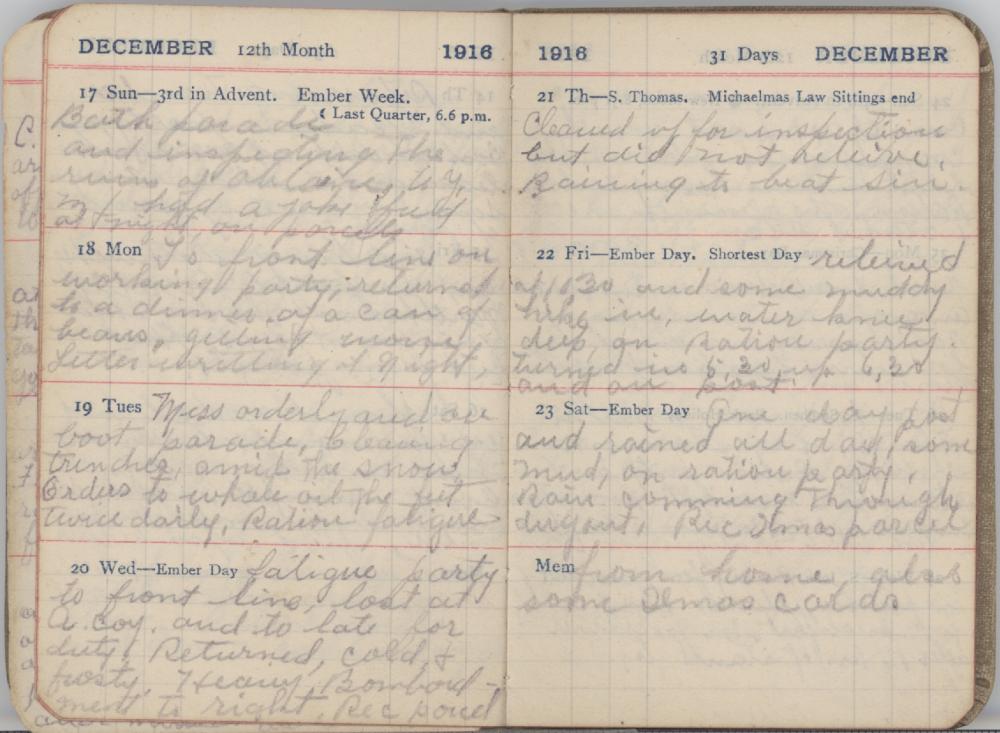 DECEMBER 12th Month 1916
17 Sun—3rd in Advent. Ember Week.
☾ Last Quarter, 6.6 p.m.
Bath parade
and inspecting the
ruins of
had a
at night, on parcels
18 Mon To front line on
working party, returned
to a dinner of a can of
beans,
Letter writting at night,
19 Tues Mess orderly and on
boot parade, cleaning
trenches, amid the snow,
Orders to whale oil the feet
twice daily, Ration fatigue
20 Wed—Ember Day fatigue party
to front line, lost at
A. Coy. and to late for
duty, Returned, cold, &
frosty, Heavy Bombord-
ment to right, Rec
1916 31 Days DECEMBER
21 Th—S. Thomas. Michaelmas Law Sittings end
Cleaned up for inspection
but did not releive.
Raining to beat sin.
22 Fri—Ember Day. Shortest Day releived
at 1030 and some muddy
hike in, water knee
deep, on Ration party.
turned in 5,30, up 6,30
and on post.
23 Sat—Ember Day One day post
and rained all day, some
mud, on ration party,
Rain comming through
dugout, Rec Xmas parcel
Mem from home, also
some Xmas cards